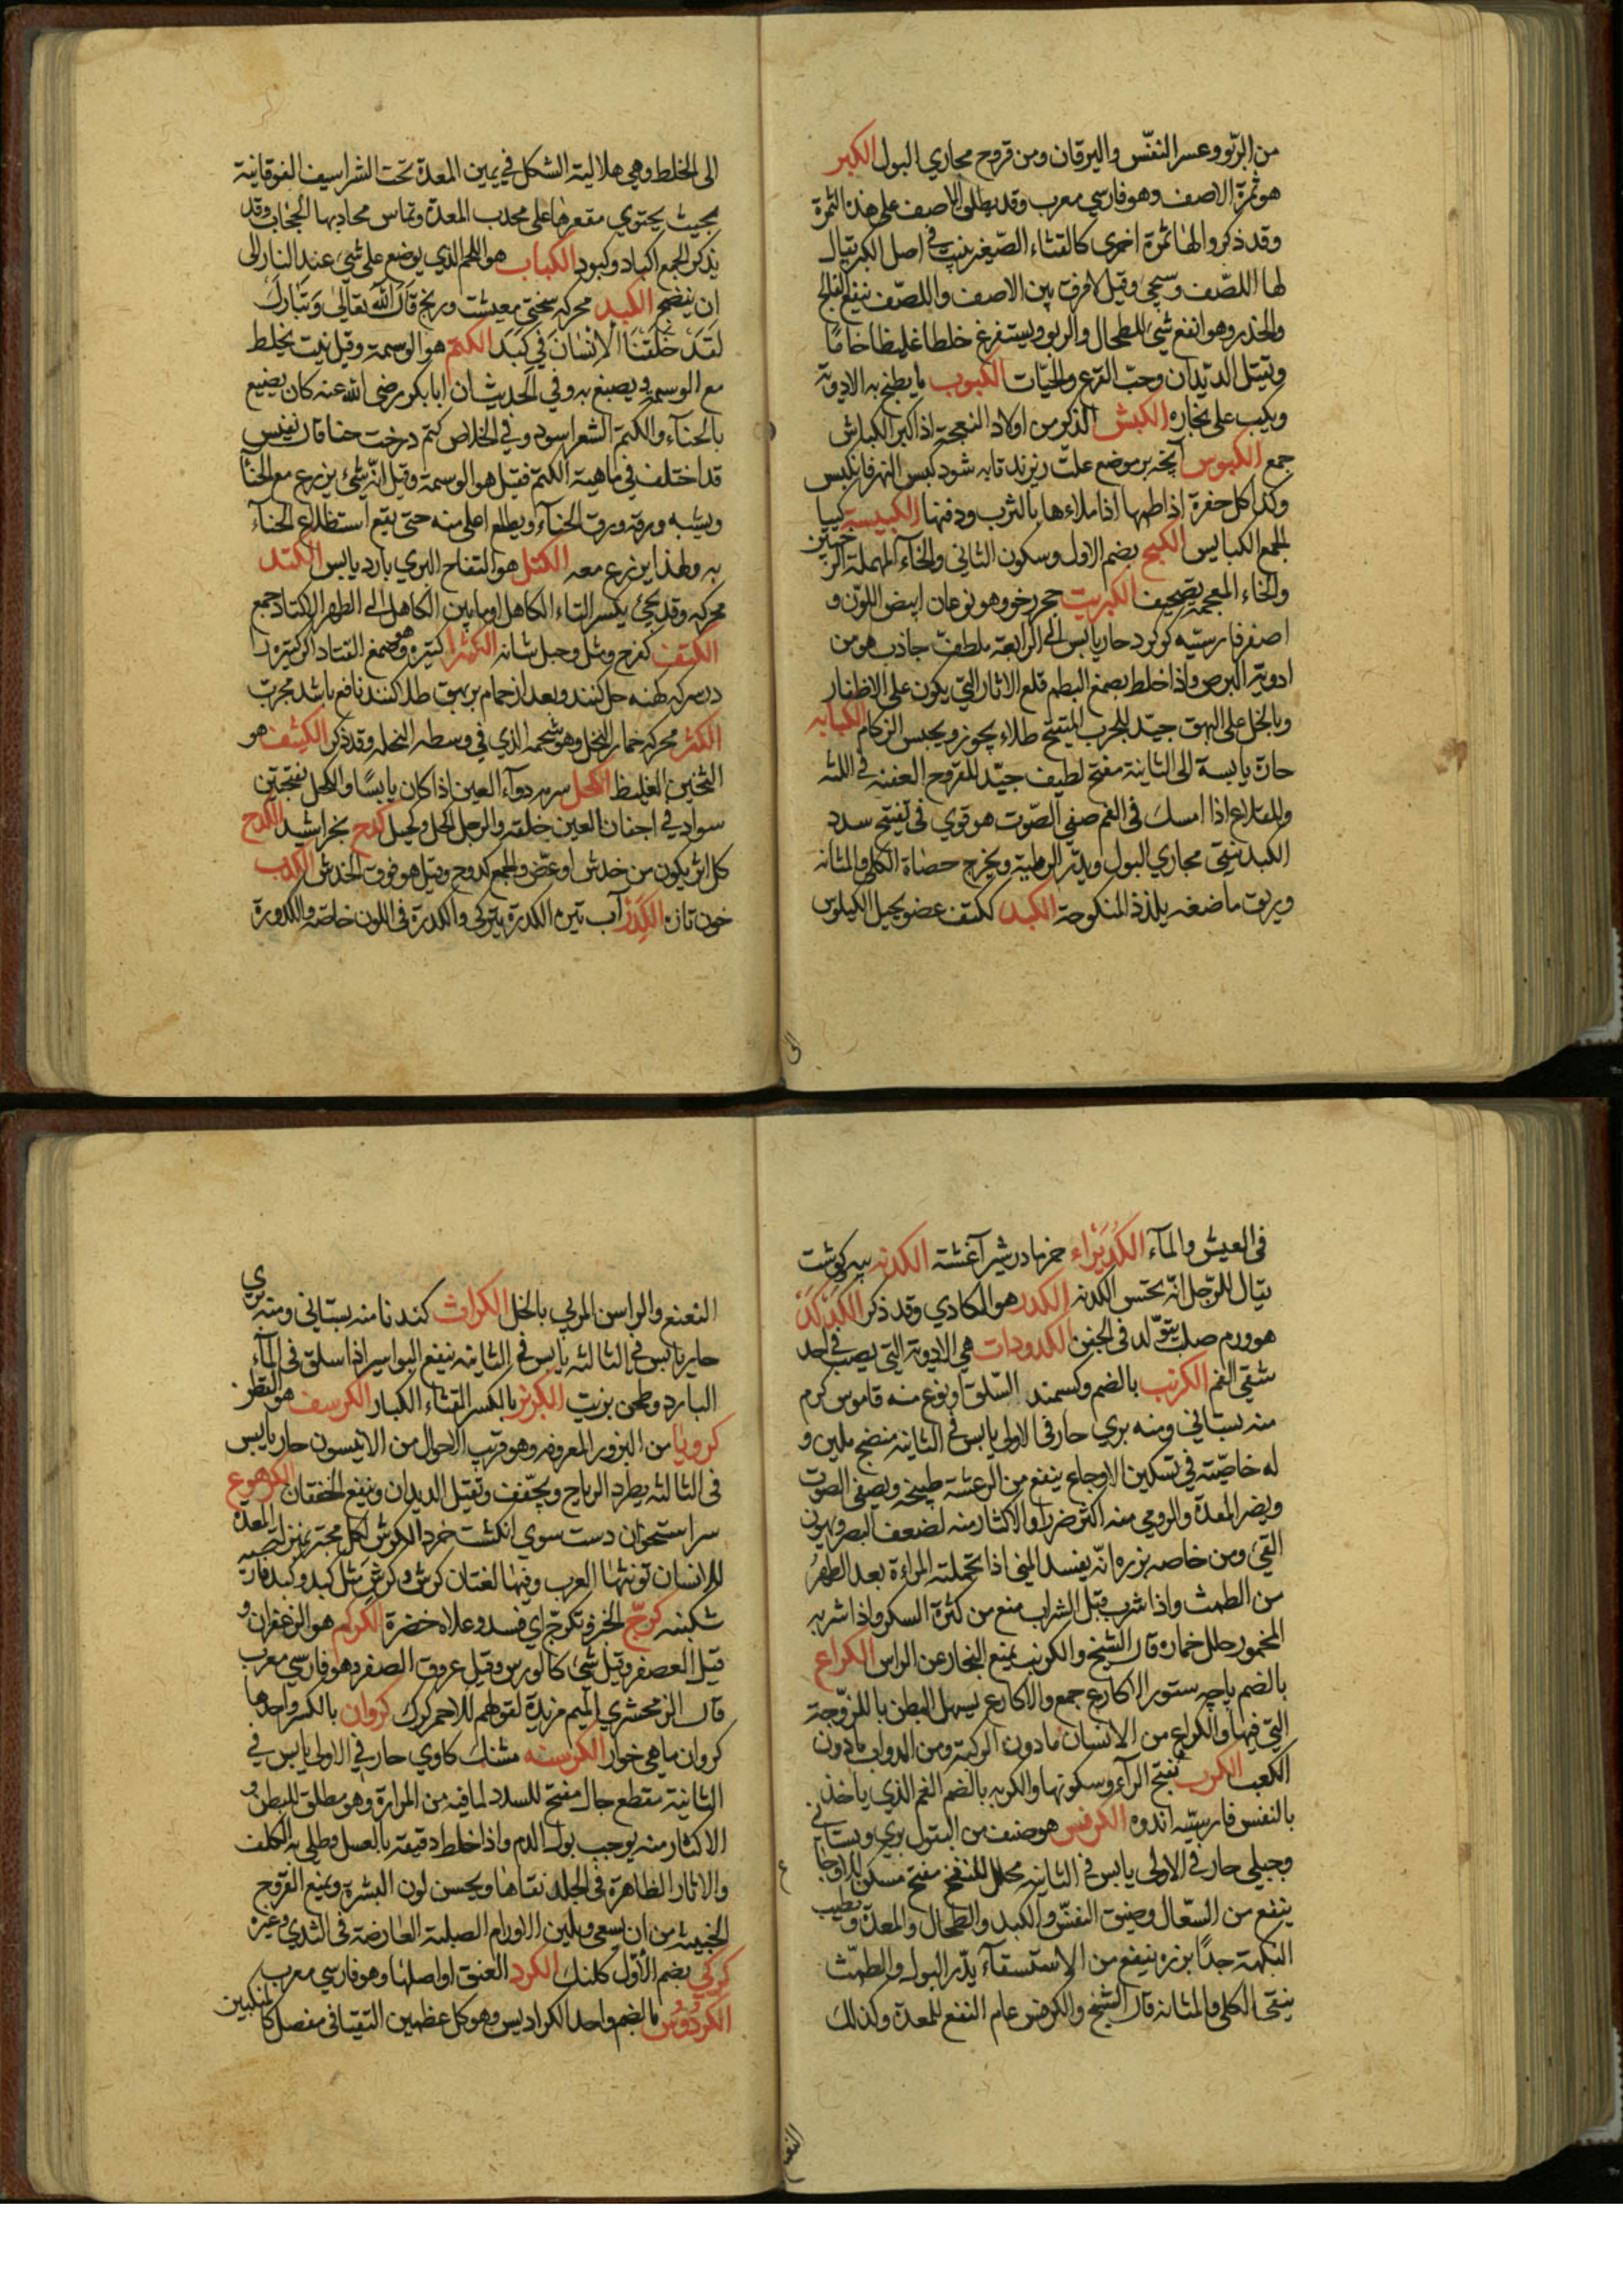 من الربو وعسر النفس واليرقان ومن قروح مجاري البول الكبر
هو ثمرة الاصف وهو فارسي معرب وقد يطلق الاصف على هذه الثمرة
وقد ذكروا لها ثمرة اخرى كالقثاء الصغير ينبت في اصل الكبر يقال
لها اللصف وسيجئ وقيل لا فرق بين الاصف واللصف ينفع الفالج
والخدر وهو انفع شئ للطحال والربو ويستفرغ خلطا غليظا خاما
ويقتل الديدان وحب القرع والحيات الكبوب ما يطبخ به الادوية
ويكب على بخاره الكبش الذكر من اولاد النعجة اذا كبر الكباش
جمع الكبوس آنچه بر موضع علت ريزند تا به شود كبس النهر فانكبس
وكذا كل حفرة اذا طمها اذا ملاءها بالترب ودفنها الكبيسة كيپا
الجمع الكبايس الكبح بضم الاول وسكون الثاني والحاء المهملة
والخاء المعجمة تصحيف الكبريت حجر رخو وهو نوعان ابيض اللون و
اصفر فارسيه كوكرد حار يابس الى الرابعة ملطف جاذب هو من
ادوية البرص واذا خلط بصمغ البطم قلع الاثار التي يكون على الاظفار
وبالخل على البهق جيد للجرب المتقيح طلاء بخور ويحبس الزكام الكبابه
حارة يابسة الى الثانية مفتح لطيف جيد للقروح العفنه في اللثه
وللقلاع اذا امسك في الفم صفى الصوت هو قوي في تفتيح سدد
الكبد ينقي مجاري البول ويدر الرطبة ويخرج حصاة الكلى والمثانه
وريق ماضغه يلذذ المنكوحة الكبد ككتف عضو يحيل الكيلوس
الى
الى الخلط وهي هلالية الشكل في يمين المعدة تحت الشراسيف الفوقانية
بحيث يحتوي مقعرها على محدب المعدة وتماس محاديها الحجاب وقد
يذكر الجمع اكباد وكبود الكباب هو اللحم الذي يوضع على شئ عند النار الى
ان ينضج الكبد محركه سختي معيشت ورنج قال الله تعالى وتبارك
لقد خلقنا الانسان في كبد الكتم هو الوسمة وقيل نبت يخلط
مع الوسمة ويصبغ به وفي الحديث ان ابا بكر رضي الله عنه كان يصبغ
بالحناء والكتم الشعر اسود وفي الخلاص كتم درخت حنا قال نفيس
قد اختلف في ماهية الكتم فقيل هو الوسمة وقيل انه شئ يزرع مع الحنا
ويشبه ورقه ورق الحناء ويطلع اعلى منه حتى يقع استظلاع الحناء
به ولهذا يزرع معه الكتل هو التفاح البري بارد يابس الكتد
محركه وقد يجئ بكسر التاء الكاهل او ما بين الكاهل الى الظهر الاكتاد جمع
الكتف كفرح ومثل وحبل شانه الكثيرا كتيره وهو صمغ القتاد اكر كتيره را
در سركه كهنه حل كنند وبعد از حمام بر بهق طلا كنند نافع باشد مجرب
الكثر محركه خمار النخل وهو شحمه الذي في وسطه النخله وقد ذكر الكثيف هو
الثخين الغليظ الكحل سرمه دواء العين اذا كان يابسا والكحل بفتحتين
سواد في اجفان العين خلقة والرجل اكحل وكحيل كدح بخراشيد الكدح
كل اثر يكون من خدش او عض والجمع كدوح وقيل هو فوق الخدش الكدب
خون تازه الكدر آب تيره الكدرة تيركي والكدرة في اللون خاصة والكدورة
في العيش والماء الكديراء خرما در شير آغشته الكدنه پيه كوشت
يقال للرجل انه لحسن الكدنه الكدر هو الكادي وقد ذكر الكدكد
هو ورم صلب يتولد في الجفن الكدودات هي الادوية التي يصب في احد
شقي الفم الكرنب بالضم وكسمند السلق او نوع منه قاموس كرم
منه بستاني ومنه بري حار في الاولى يابس في الثانية منضج ملين و
له خاصية في تسكين الاوجاع ينفع من الرعشة طبيخه ويصفي الصوت
ويضر المعدة والرومي منه اكثر ضررا والاكثار منه لضعف البصر ويهون
القئ ومن خاصه بزره انه يفسد المني اذا تحملته المراءة بعد الطهر
من الطمث واذا شرب قبل الشراب منع من كثرة السكر واذا شربه
المخمور حلل خماره قال الشيخ والكرنب يمنع البخار عن الراس الكراع
بالضم پاچه ستور الاكارع جمع والاكارع يسهل البطن باللزوجة
التي فيها والكراع من الانسان ما دون الركبة ومن الدواب ما دون
الكعب الكرب بفتح الراء وسكونها والكربه بالضم الغم الذي ياخذ
بالنفس فارسيه اندوه الكرفس هو صنف من البقول بري وبستاني
وجبلي حار في الاولى يابس في الثانية محلل للنفخ مفتح مسكن للاوجاع
ينفع من السعال وضيق النفس والكبد والطحال والمعدة ويطيب
النكهة جدا بزره ينفع من الاستسقاء يدر البول والطمث
ينقي الكلى والمثانه قال الشيخ والكرفس عام النفع للمعدة وكذلك
النعنع
النعنع والراسن المربى بالخل الكراث كندنا منه بستاني ومنه بري
حار يابس في الثالثه يابس في الثانيه ينفع البواسير اذا سلق في الماء
البارد وطجن بزيت الكربز بالكسر القثاء الكبار الكرسف هو القطن
كرويا من البزور المعروفه وهو قريب الاحوال من الانيسون حار يابس
في الثالثه يطرد الرياح ويجفف ويقتل الديدان وينفع الخفقان الكرسوع
سر استخوان دست سوي انكشت خرد الكرش لكل مجتر بمنزلة المعدة
للانسان تونثها العرب وفيها لغتان كرش وكرش مثل كبد وكبد فارسيه
شكنبه كرج الخبز وتكرج اي فسد وعلاه خضرة الكركم هو الزعفران و
قيل العصفر وقيل شئ كالورس وقيل عروق الصفر وهو فارسي معرب
قال الزمخشري الميم مزيدة لقولهم للاحمر كرك كروان بالكسر واحدها
كروان ماهي خوار الكرسنه مشنك كاوي حار في الاولى يابس في
الثانية مقطع جال مفتح للسدد لما فيه من المرارة وهو مطلق للبطن و
الاكثار منه يوجب بول الدم واذا خلط دقيقه بالعسل وطلي به الكلف
والاثار الظاهرة في الجلد نقاها ويحسن لون البشرة ويمنع القروح
الخبيثه من ان يسعى ويلين الاورام الصلبة العارضة في الثدي وغيره
كركي بضم الاول كلنك الكرد العنق او اصلها وهو فارسي معرب
الكردوس بالضم واحد الكراديس وهو كل عظمين التقيا في مفصل كالمنكبين